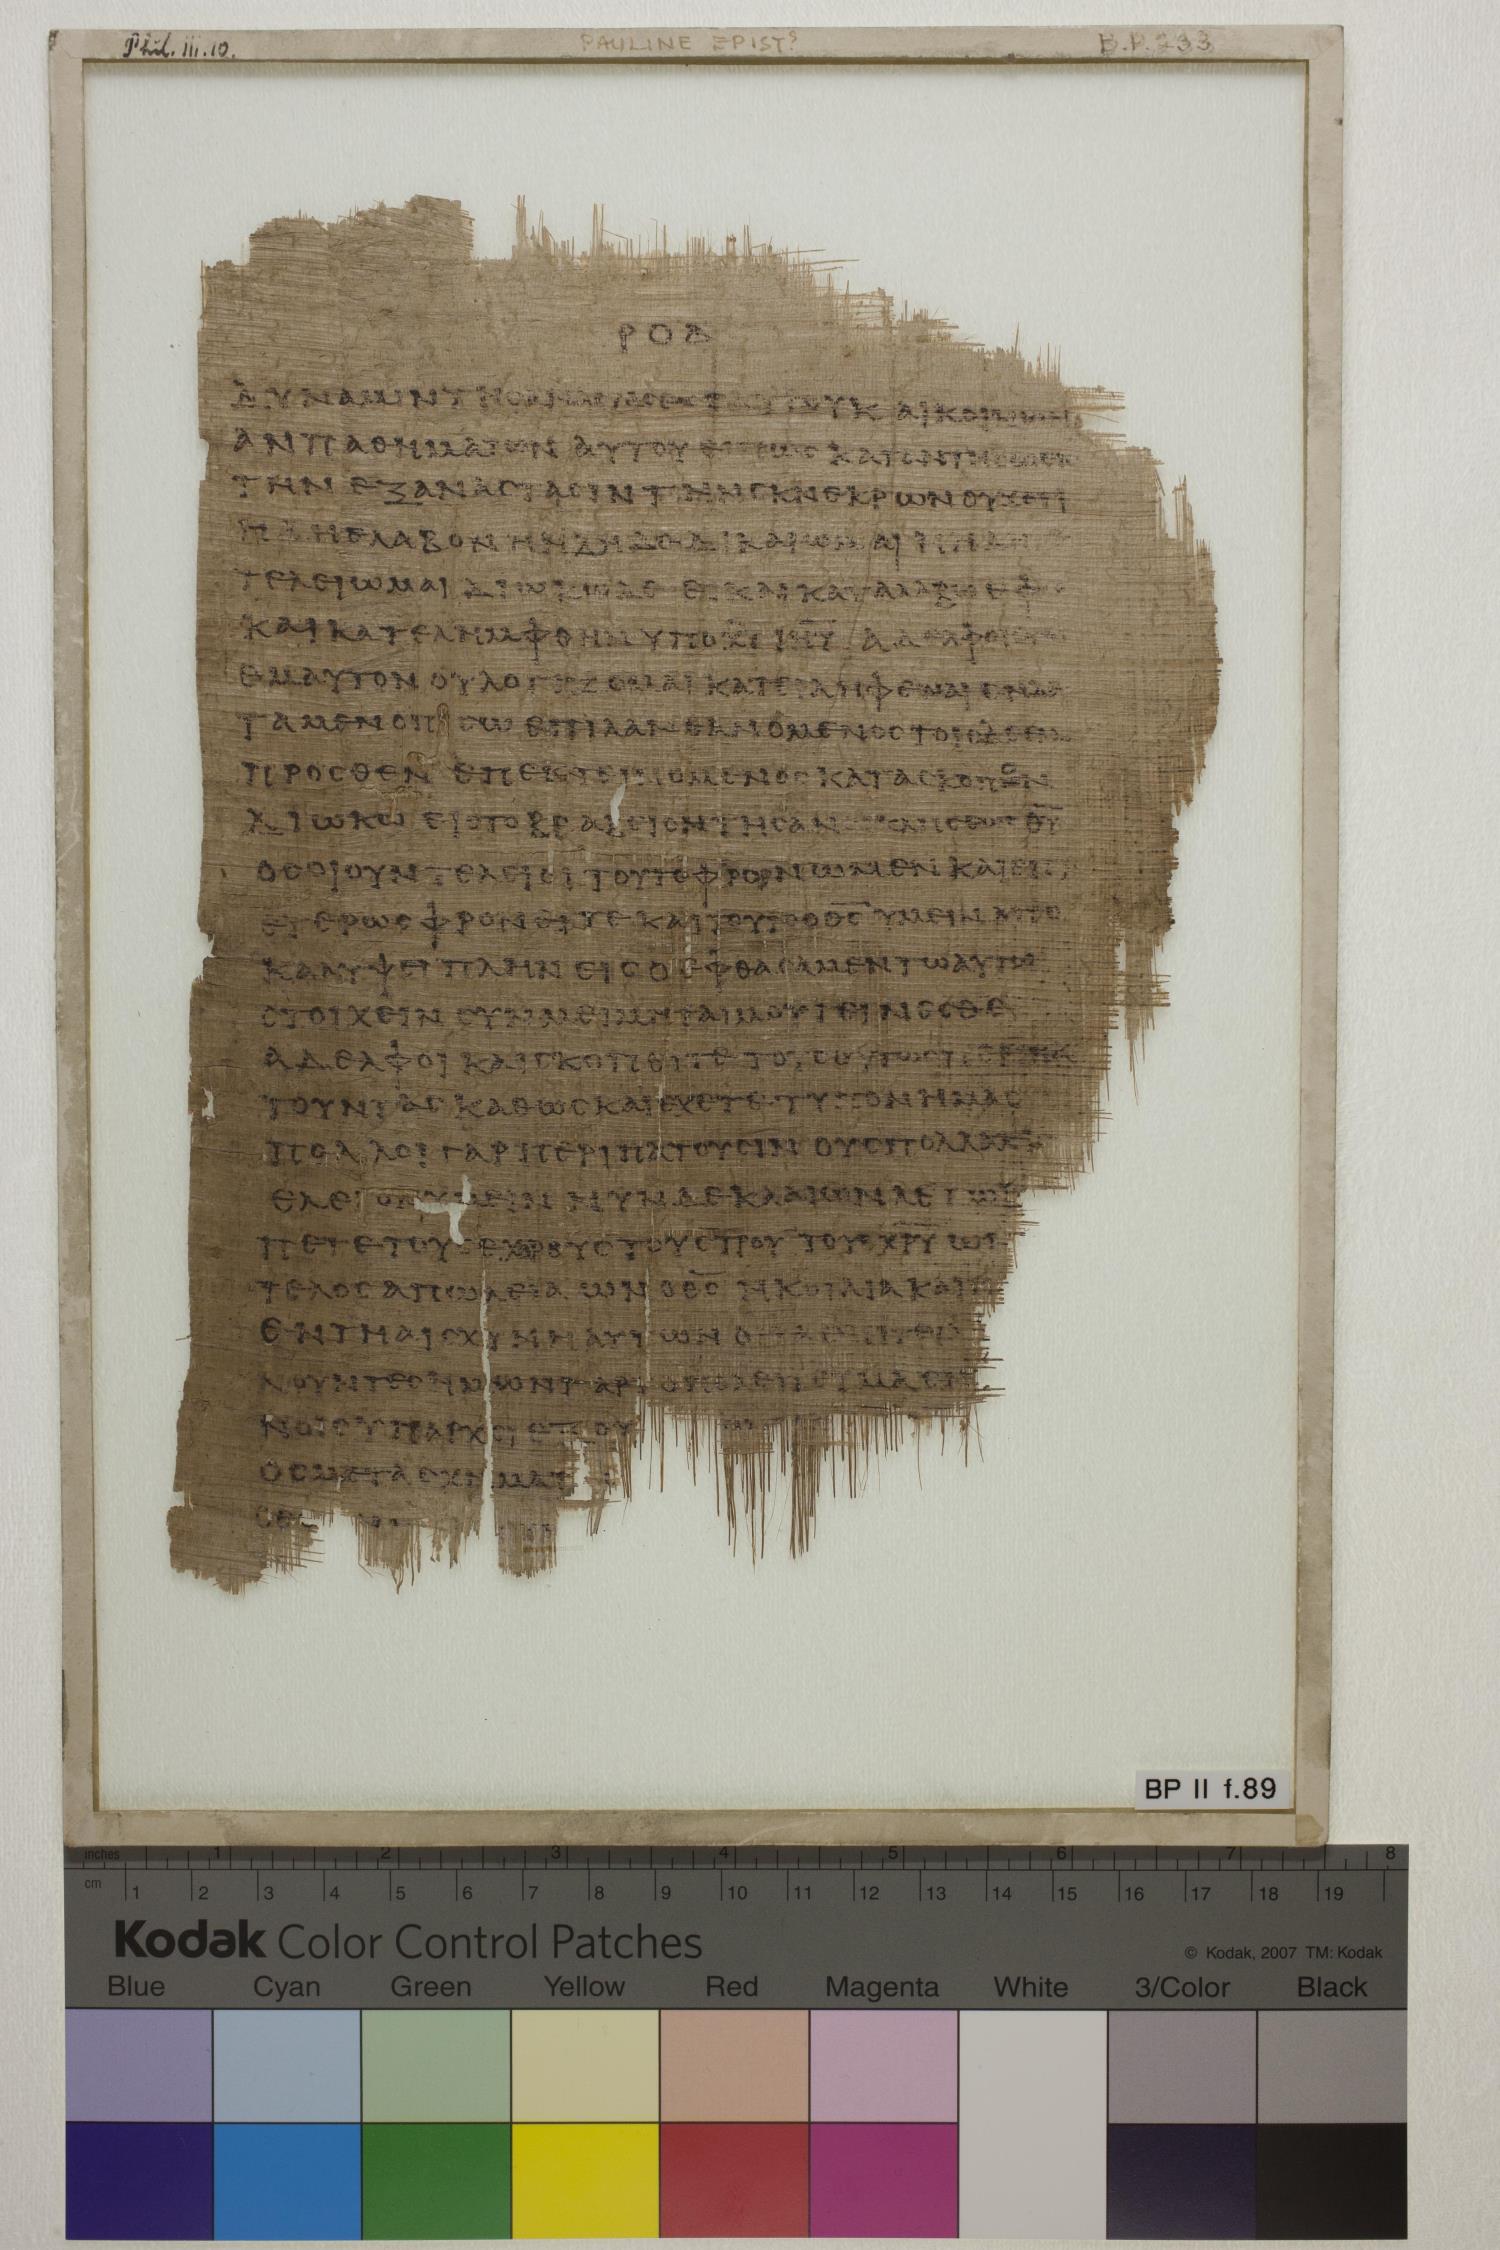 Phil. III. 10.
PAULINE EPIST?
B.P. 233
ΡΟΔ
ΔΥΝΑΜΙΝ ΤΗϹ ΑΝΑϹΤΑϹΕΩϹ ΑΥΤΟΥ ΚΑΙ ΚΟΙΝΩΝΙ
ΑΝ ΠΑΘΗΜΑΤΩΝ ΑΥΤΟΥ ΕΙ ΠΩϹ ΚΑΤΑΝΤΗϹΩ ΕΙϹ
ΤΗΝ ΕΞΑΝΑϹΤΑϹΙΝ ΤΗΝ ΕΚ ΝΕΚΡΩΝ ΟΥΧ ΟΤΙ
ΕΛΑΒΟΝ Η ΗΔΗ ΔΕΔΙΚΑΙΩΜΑΙ Η ΗΔΗ
ΤΕΛΕΙΩΜΑΙ ΔΙΩΚΩ ΔΕ ΕΙ ΚΑΙ ΚΑΤΑΛΑΒΩ ΕΦ
ΚΑΙ ΚΑΤΕΛΗΜΦΘΗΝ ΥΠΟ ΧΡΥ ΙΗΥ ΑΔΕΛΦΟΙ ΕΓΩ
ΕΜΑΥΤΟΝ ΟΥ ΛΟΓΙΖΟΜΑΙ ΚΑΤΕΙΛΗΦΕΝΑΙ ΕΝ ΔΕ
ΤΑ ΜΕΝ ΟΠΙϹΩ ΕΠΙΛΑΝΘΑΝΟΜΕΝΟϹ ΤΟΙϹ ΔΕ ΕΜ
ΠΡΟϹΘΕΝ ΕΠΕΚΤΕΙΝΟΜΕΝΟϹ ΚΑΤΑ ϹΚΟΠΟΝ
ΔΙΩΚΩ ΕΙϹ ΤΟ ΒΡΑΒΕΙΟΝ ΤΗϹ ΑΝΩ ΚΛΗϹΕΩϹ Θ̅Υ̅
ΟϹΟΙ ΟΥΝ ΤΕΛΕΙΟΙ ΤΟΥΤΟ ΦΡΟΝΩΜΕΝ ΚΑΙ ΕΙ ΤΙ
ΕΤΕΡΩϹ ΦΡΟΝΕΙΤΕ ΚΑΙ ΤΟΥΤΟ Ο Θ̅Ϲ̅ ΥΜΕΙΝ ΑΠΟ
ΚΑΛΥΨΕΙ ΠΛΗΝ ΕΙϹ Ο ΕΦΘΑϹΑΜΕΝ ΤΩ ΑΥΤΩ
ϹΤΟΙΧΕΙΝ ϹΥΝΜΕΙΜΗΤΑΙ ΜΟΥ ΓΕΙΝΕϹΘΕ
ΑΔΕΛΦΟΙ ΚΑΙ ϹΚΟΠΕΙΤΕ ΤΟΥϹ ΟΥΤΩϹ ΠΕΡΙΠΑ
ΤΟΥΝΤΑϹ ΚΑΘΩϹ ΚΑΙ ΕΧΕΤΕ ΤΥΠΟΝ ΗΜΑϹ
ΠΟΛΛΟΙ ΓΑΡ ΠΕΡΙΠΑΤΟΥϹΙΝ ΟΥϹ ΠΟΛΛΑΚΙ
ΕΛΕΓΟΝ ΥΜΕΙΝ ΝΥΝ ΔΕ ΚΛΑΙΩΝ ΛΕΓΩ
ΠΕΤΕ ΤΟΥϹ ΕΧΘΡΟΥϹ ΤΟΥ Ϲ̅Τ̅Ρ̅Ο̅Υ̅ ΤΟΥ Χ̅Ρ̅Υ̅ ΩΝ
ΤΕΛΟϹ ΑΠΩΛΕΙΑ ΩΝ Ο Θ̅Ϲ̅ Η ΚΟΙΛΙΑ ΚΑΙ Η
ΕΝ ΤΗ ΑΙϹΧΥΝΗ ΑΥΤΩΝ ΟΙ ΤΑ ΕΠΙΓΕΙΑ
ΝΟΥΝΤΕϹ ΗΜΩΝ ΓΑΡ ΤΟ ΠΟΛΕΙΤΕΥΜΑ ΕΝ
ΝΟΙϹ ΥΠΑΡΧΕΙ ΕΞ ΟΥ
ΟϹ ΜΕΤΑϹΧΗΜΑΤ
BP II f.89
inches 1 2 3 4 5 6 7 8
cm 1 2 3 4 5 6 7 8 9 10 11 12 13 14 15 16 17 18 19
Kodak Color Control Patches
© Kodak, 2007 TM: Kodak
Blue Cyan Green Yellow Red Magenta White 3/Color Black